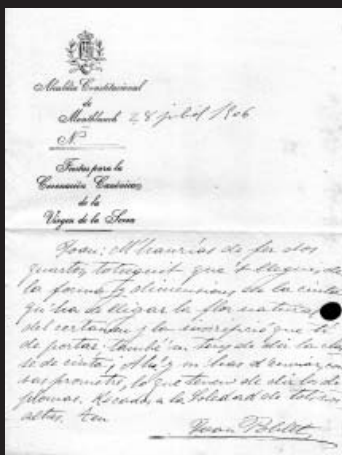 Alcaldía Constitucional
de
Montblanch 28 juliol 1906
N.º
Fiestas para la
Coronación Canónica
de la
Virgen de la Serra
Joan: M'hauriás de fer dos
quartos, totseguit que 't llegeixis, de
la forma y dimensions de la cinta
qu'ha de lligar la flor natural
del certamen y la inscripció que hi
de portar. també
se de cinta; y m'has d'enviar, com
vas prometre, lo que tenen de dir los de
plomas. Recados a la Soledad de tots nos-
altres. teu
Joan Poblet